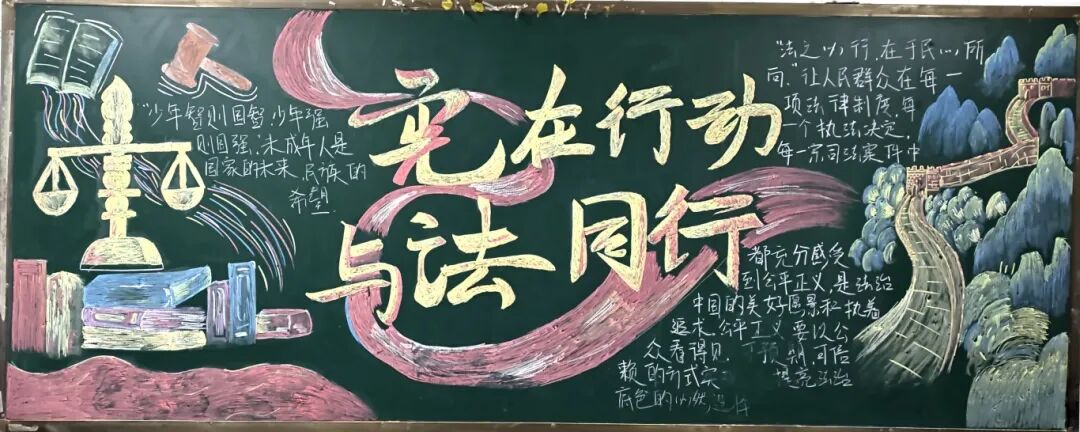 宪在行动
与法同行
"少年智则国智,少年强
则国强,未成年人是
国家的未来,民族的
希望.
"法之必行,在于民心所
向."让人民群众在每一
项法律制度,每
一个执法决定,
每一宗司法案件中
都充分感受
到公平正义,是法治
中国的美好愿景和执着
追求.公平正义要以公
众看得见, 预期可信
赖的形式实 提亮法治
底色的必然选择